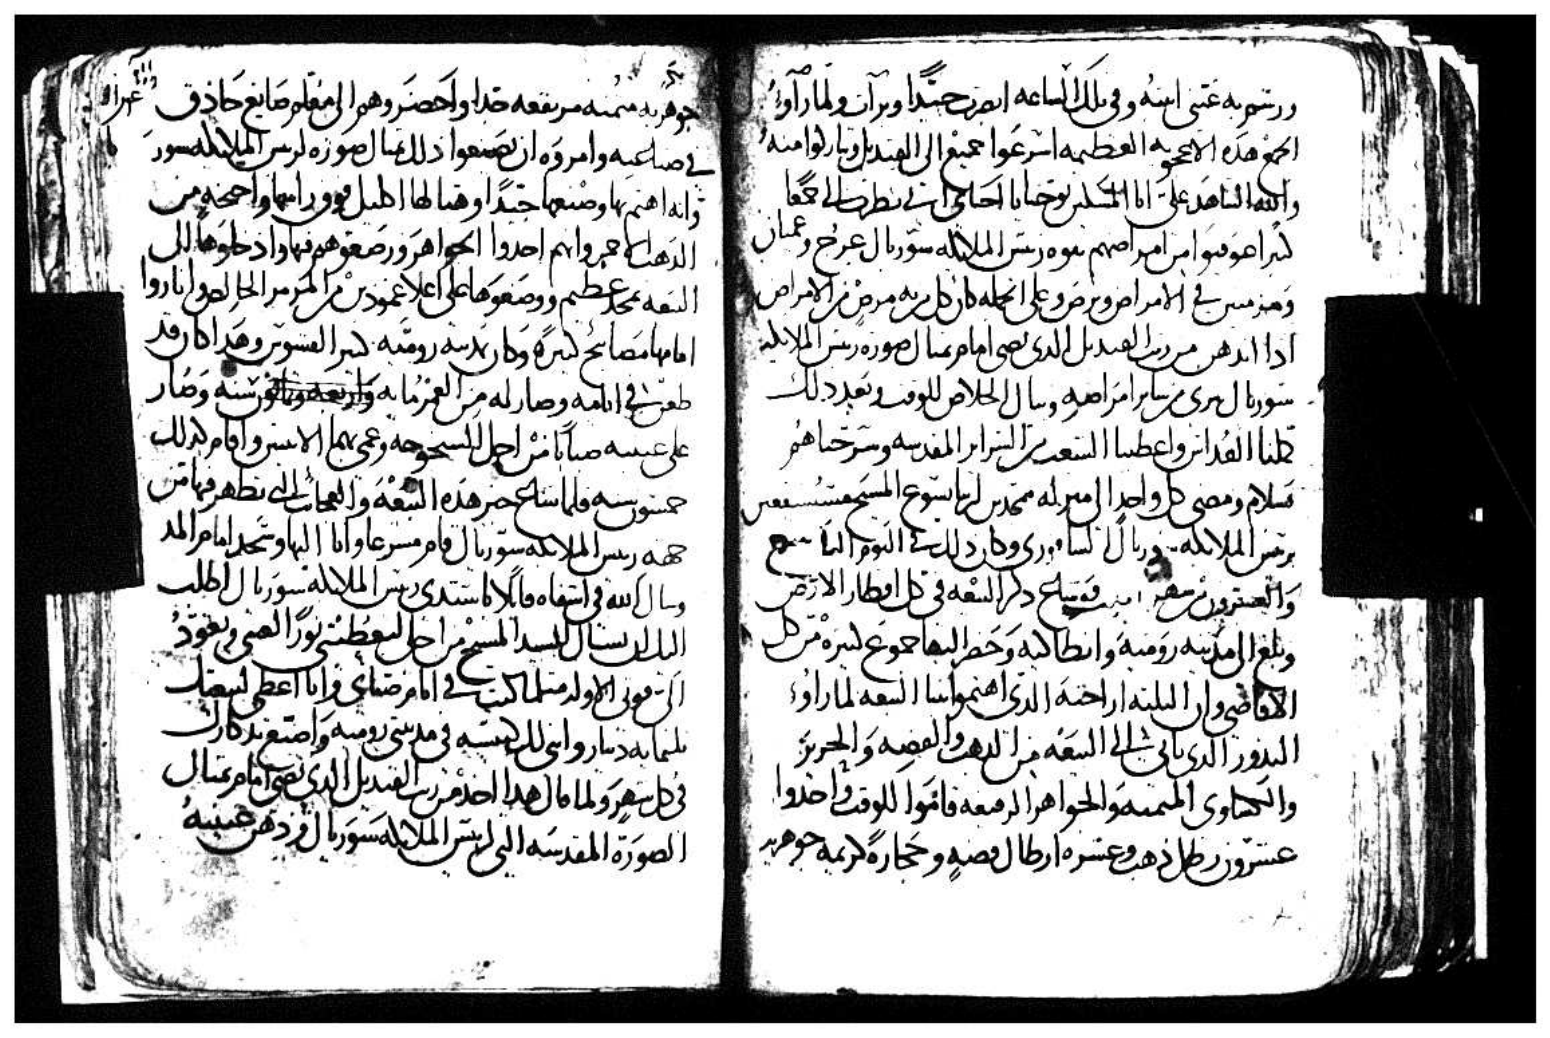 ورشم به عيني ابنه وفي تلك الساعه ابصرت جيدًا وبرات ولما راوا
الجمع هذه الاعجوبه العظيمه اسرعوا جميع الى القنديل وتباركوا منه
والله الشاهد علي انا المسكين يوحنا يا احباي انني نظرت الى جمعًا
كثيرا عوفيوا من امراضهم بقوه ريس الملايكه سوريال عرج وعميان
وخرس في الامراض وبرص وعلى الجمله كان كل من به مرض من الامراض
اذا اندهن من زيت القنديل الذي يضي امام تمثال صوره ريس الملايكه
سوريال يبرى من ساير امراضه وينال الخلاص للوقت وبعد ذلك
كملنا القداس واعطينا الشعب من السراير المقدسه وسرحناهم
بسلام ومضى كل واحد الى منزله ممجدين لربنا يسوع المسيح مستشفعين
بريس الملايكه سوريال وكان ذلك في اليوم التاسع
والعشرون من شهر فشاع ذكر البيعه في كل اقطار الارض
وبلغ الى مدينه روميه وانطاكيه وحضر اليها جموع كثيره من كل
الاقاصي وان الثلثه اراخنه الذي اهتموا ببنا البيعه لما راوا
النذور الذي ياتي الى البيعه من الذهب والفضه والحرير
والكساوى المثمنه والجواهر الرفيعه قاموا للوقت واخذوا
عشرون رطل ذهب وعشره ارطال فضه وحجارة كريمه جوهريه
جوهريه مثمنه مرتفعه جدا واحضروهم الى معلم صانع حاذق
في صناعته وامروه ان يصنعوا ذلك تمثال صوره لريس الملايكه سوريال
وانه اهتم بها وصنعها جيدًا وهيا لها اكليل فوق راسها واجنحه من
الذهب الاحمر وانهم اخذوا الجواهر ورصعوهم فيها وادخلوها الى
البيعه بمجد عظيم ووضعوها على اعلا عمودين من المرمر الخالص واناروا
امامها مصابيح كثيرة وكان بمدينه روميه كبير القسوس وهذا كان قد
طعن في ايامه وصار له من العمر مايه سنه وصار
على عينيه ضبابًا من اجل الشيخوخه وعمي بهما الاثنين واقام كذلك
خمسون سنه فلما شاع خبر هذه البيعه والعجايب التي تظهر فيها من
جهة ريس الملايكه سوريال قام مسرعا واتا اليها وسجد امام المذبح
وسال الله في اشفاه قايلا يا سيدي ريس الملايكه سوريال اطلب
اليك ان تسال السيد المسيح من اجلي ليعطيني نورًا لعيني ويعود
الي قوتي الاوله مثلما كنت في ايام صباي وانا اعطي لبيعتك
ثلثمايه دينار وابني لك كنيسه في مدينتي روميه واصنع تدكارك
في كل شهر ولما قال هدا اخد من زيت القنديل الذي يضي امام تمثال
الصورة المقدسه التي لريس الملايكه سوريال ودهن عينيه